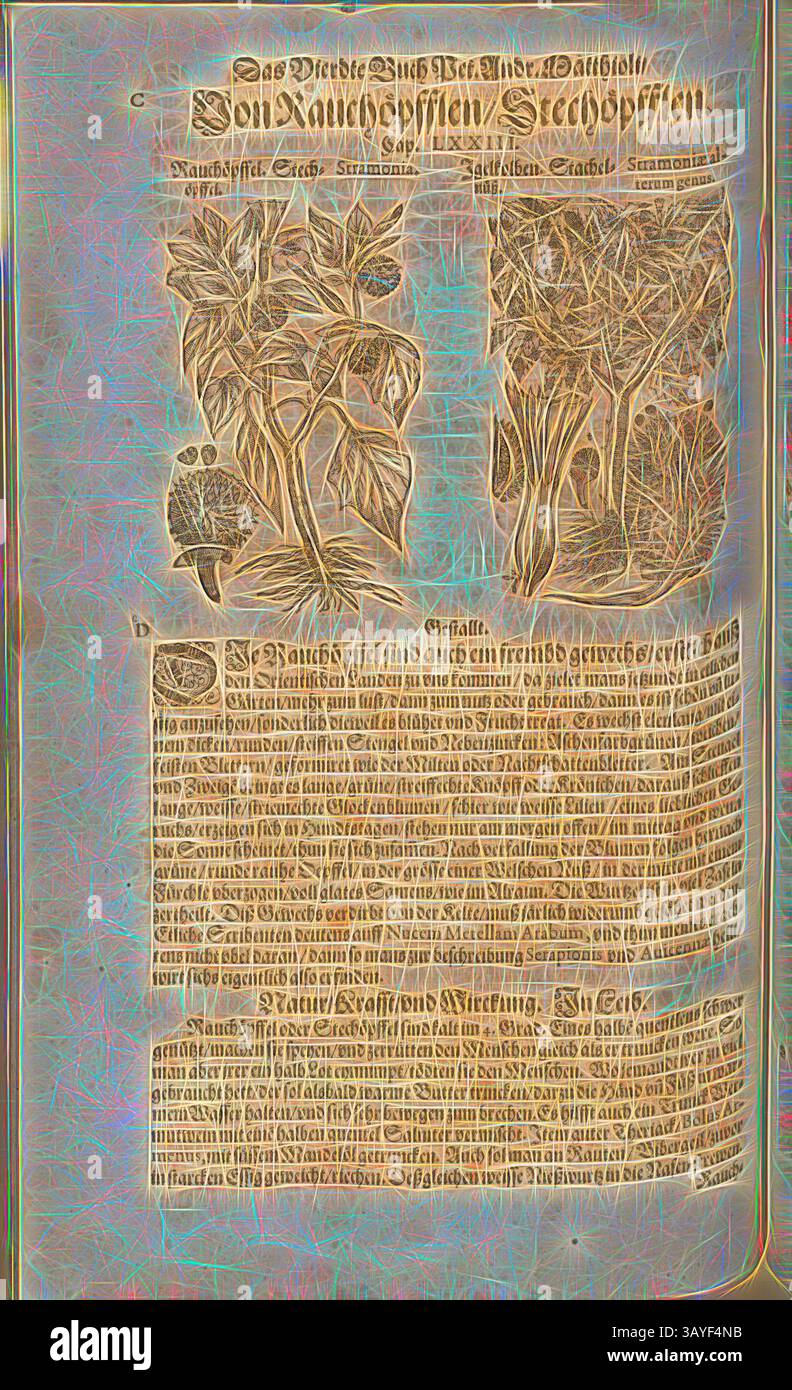 Das Vierdte Buch Pet. Andr. Matthioli/
C
Von Rauchöpfflen/ Stechöpfflen.
Cap. LXXIII.
Rauchöpffel. Stech- Stramonia. Igelkolben. Stachel- Stramoniæ al-
öpffel. nüß. terum genus.
D
Gestallt.
Die Rauchöpffel sind auch ein frembd gewechs/ erstlich auß
der Orientischen Landen zu uns kommen/ da zielet mans jetzund in etlichen
Gärten/ mehr zum lust/ dann zum nutz oder gebrauch/ dann es ist schön
sig anzusehen/ sonderlich dieweil es blühet vnd Frucht tregt. Es wechst elenlang/ mit
nem dicken/ runden/ steiffen Stengel vnd Nebenzincken: Aschenfarben/
feißten Blettern/ geformiret wie der Milten oder Nachtschattenbletter. Am Stengel
vnd Zweigen bringt es lange/ grüne/ streiffechte Knöpff oder Krönichen/ darauß
lange/ weisse/ Glockenblumen/ schier wie weisse Lilien/ eines lieblichen Ge-
ruchs/ erzeigen sich in Hundstagen/ stehen nur am morgen offen/ im mittag vnd wenn
die Sonne scheinet/ thun sie sich zusamen. Nach verfallung der Blumen folgen hernach
grüne/ runde rauhe Öpffel/ in der grösse einer Welschen Nuß/ in der mitte mit einem
voll glates Samens/ wie am Alraun. Die Wurtzel ist in viel Zaseln
zertheilt. Diß Gewechs verdirbt von der Kelte/ muß järlich widerumb
Etliche Scribenten deuten es auff Nucem Metellam Arabum, vnd thun meines
ens nicht vbel daran/ dann so mans zur beschreibung Serapionis vnd Avicennæ
wirt sichs eigentlich also erfinden.
Natur/ Krafft/ vnd Wirckung. In Leib.
Rauchöpffel oder Stechöpffel sind kalt im 4. Grad. Eines halbē quentlins schwer
genützt/ machen sie speyen/ vnd zerrütten den Menschen gleich als er truncken were. So
man aber vier ein halb Lot eynnimpt/ tödten sie den Menschen. Wo jemand er zu viel
gebraucht hett/ der sol als bald warm Butter trincken/ darzu die Händ vñ Füß in
mem Wasser halten/ vnd sich sehr bewegen zum brechen. Es hilfft auch ein Trunck
mutwein mit eim halben quintel Salniter vermischt. Item guter Theriack/ Bolus Ar-
menus, mit süssem Mandelöl getruncken. Auch sol man an Rauten/ Bibergeil/ zuvor
in starcken Essig geweicht/ riechen. Deßgleichen weisse Nießwurtz in die Nasen
Rauch-
alamy
Image ID: 3AYF4NB
www.alamy.com